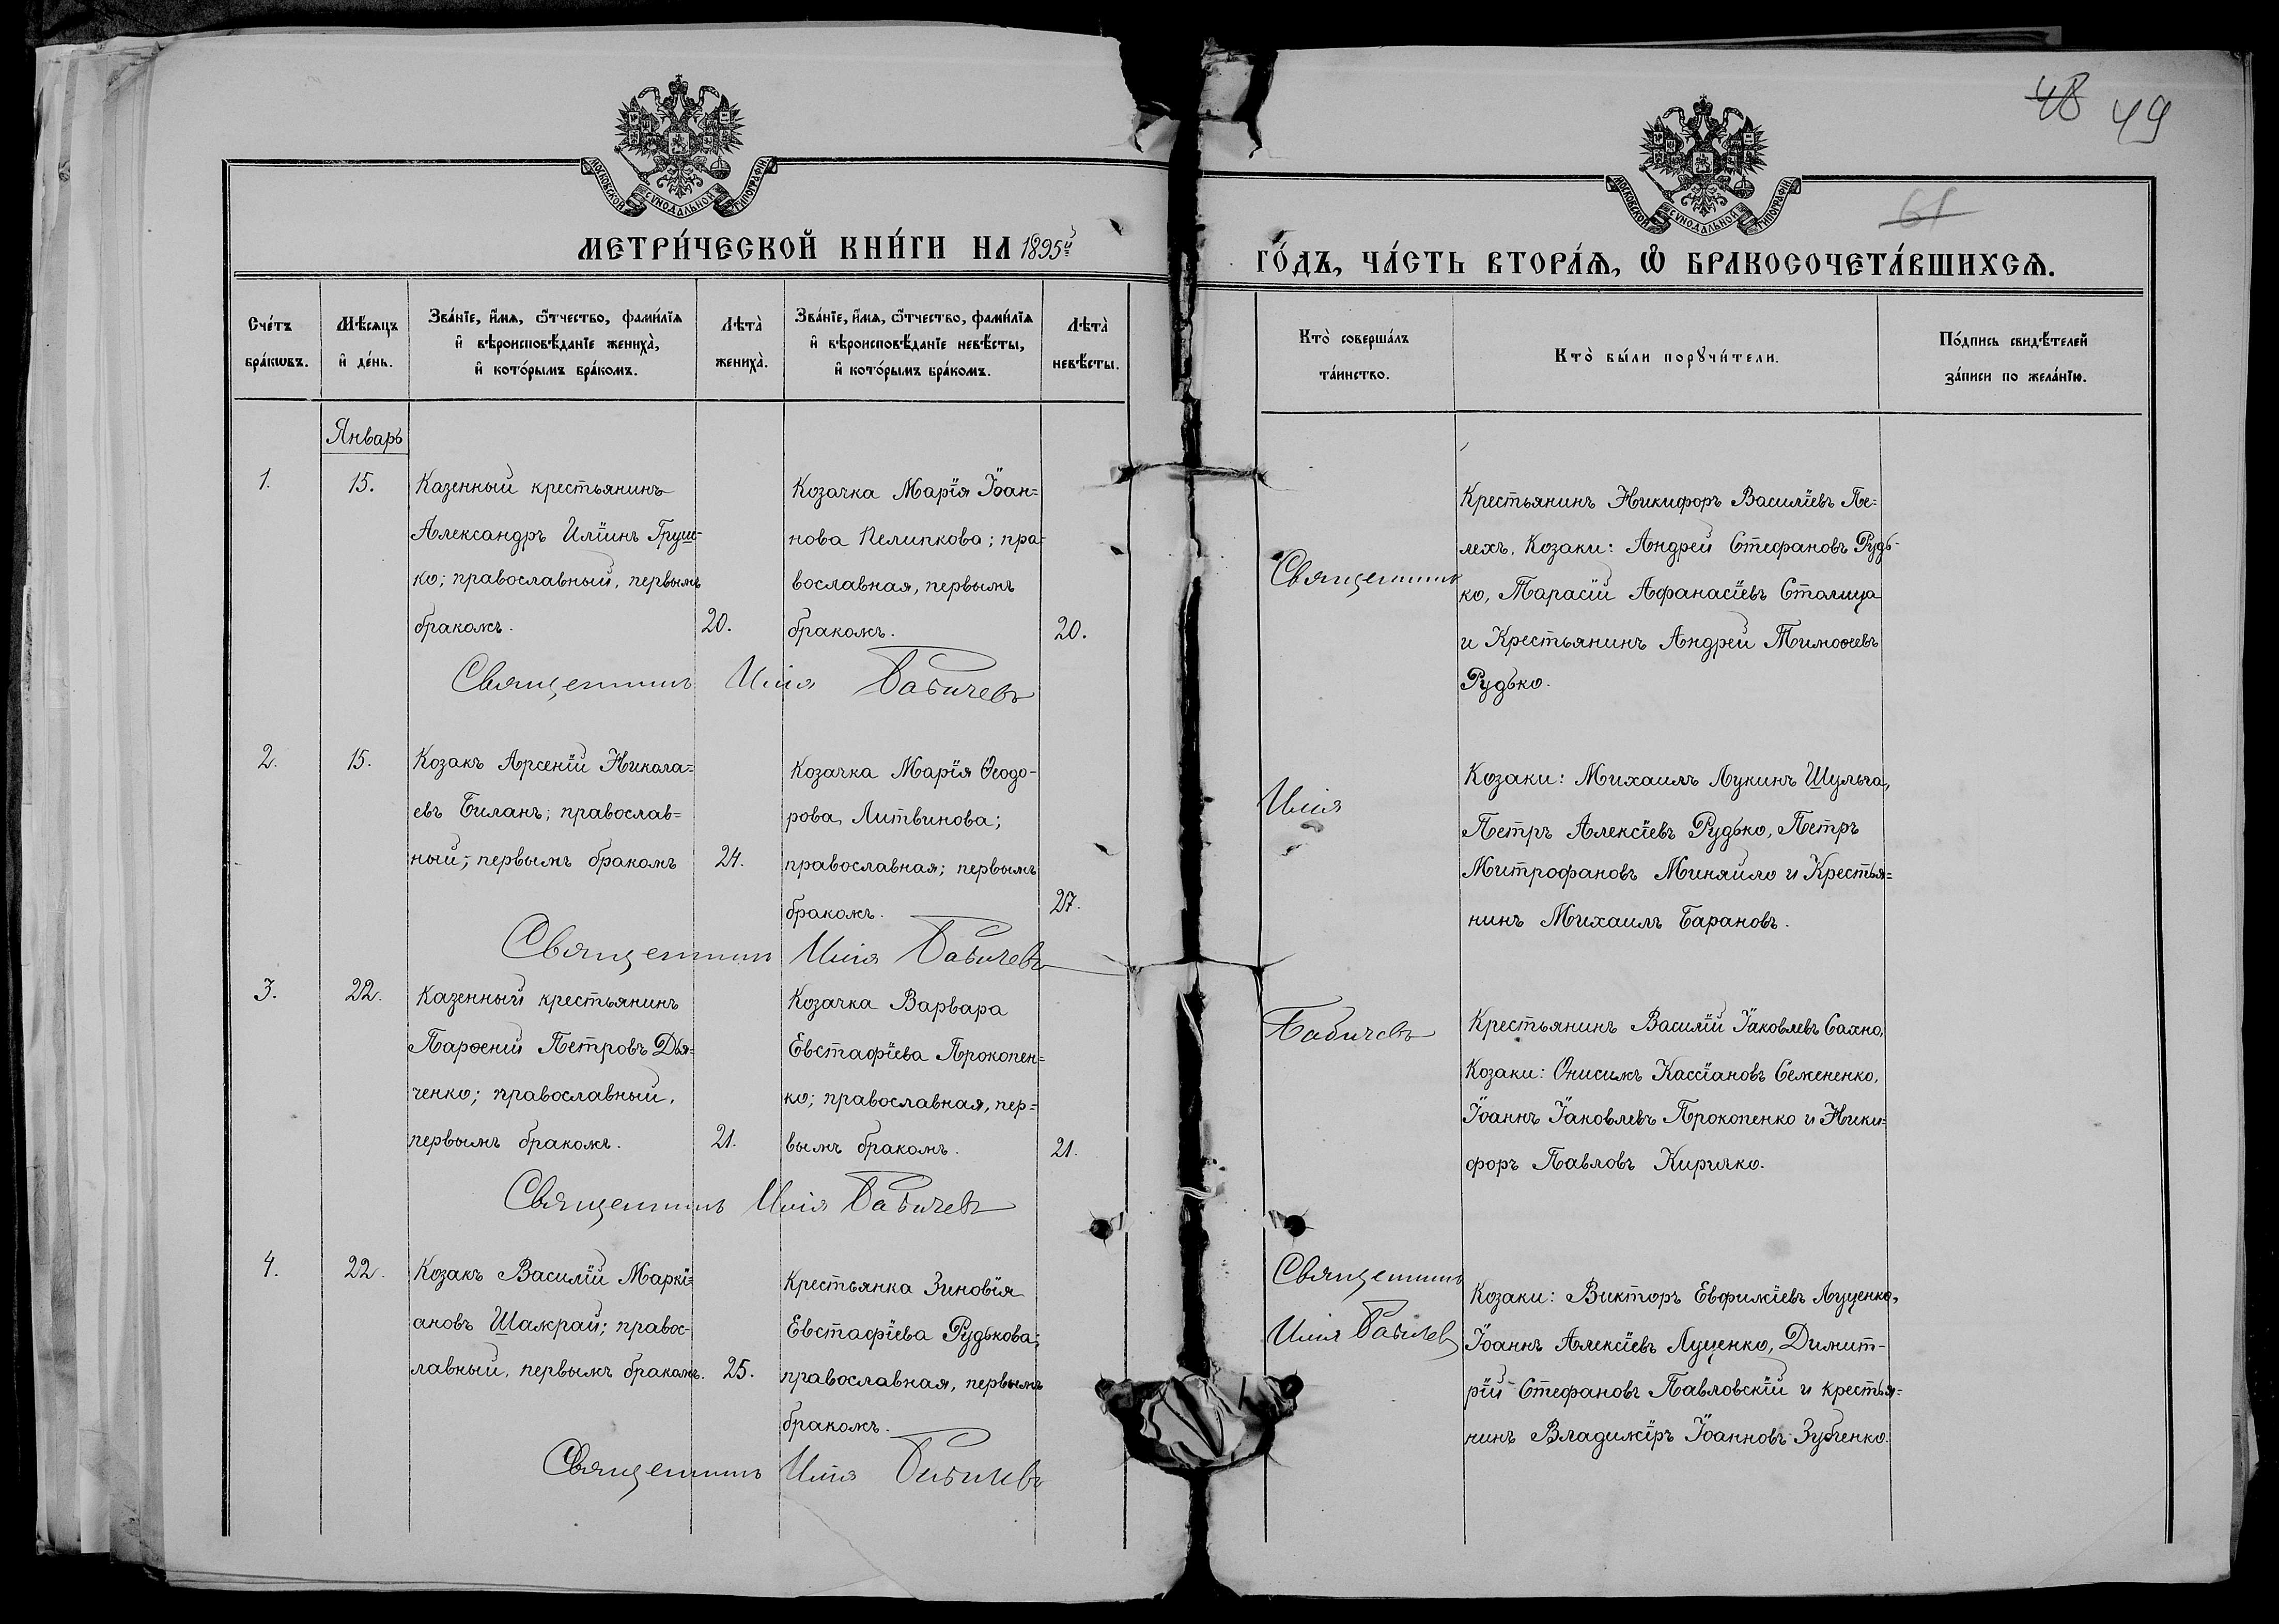 48 49
61
МОСКОВСКОЙ СѴНОДАЛЬНОЙ ТИПОГРАФІИ
МОСКОВСКОЙ СѴНОДАЛЬНОЙ ТИПОГРАФІИ
МЕТРИ́ЧЕСКОЙ КНИ́ГИ НА 1895й
ГО́ДЪ, ЧА́СТЬ ВТОРА́Ѧ, Ѽ БРАКОСОЧЕТА́ВШИХСѦ.
Сче́тъ бра́кѡвъ.
Мѣ́сѧцъ и҆ де́нь.
Зва́нїе, и҆́мѧ, ѻ҆́тчество, фами́лїѧ
и҆ вѣроисповѣ́данїе жениха̀,
и҆ кото́рымъ бра́комъ.
Лѣта̀ жениха̀.
Зва́нїе, и҆́мѧ, ѻ҆́тчество, фами́лїѧ
и҆ вѣроисповѣ́данїе невѣ́сты,
и҆ кото́рымъ бра́комъ.
Лѣта̀ невѣ́сты.
Кто̀ соверша́лъ
та́инство.
Кто̀ бы́ли порꙋчи́тели.
По́дпись свидѣ́телей
за́писи по жела́нїю.
Январь
1.
15.
Казенный крестьянинъ
Александръ Иліинъ Груш-
ко; православный, первымъ
бракомъ.
20.
Козачка Марія Іоан=
нова Пелипкова; пра-
вославная, первымъ
бракомъ.
20.
Священникъ Илія Бабичевъ
Священникъ
Крестьянинъ Никифоръ Василіевъ Пе=
лехъ, Козаки: Андрей Стефановъ Рудь-
ко, Тарасій Афанасіевъ Столица
и Крестьянинъ Андрей Тимоѳеевъ
Рудько.
2.
15.
Козакъ Арсеній Никола=
евъ Биланъ; православ=
ный; первымъ бракомъ
24.
Козачка Марія Ѳеодо-
рова Литвинова;
православная; первымъ
бракомъ.
27.
Священникъ Илія Бабичевъ
Илія
Козаки: Михаилъ Лукинъ Шульга,
Петръ Алексіевъ Рудько, Петръ
Митрофановъ Миняйло и Крестья=
нинъ Михаилъ Барановъ.
3.
22.
Казенный крестьянинъ
Парѳеній Петровъ Дья-
ченко; православный,
первымъ бракомъ.
21.
Козачка Варвара
Евстафіева Прокопен=
ко; православная, пер=
вымъ бракомъ.
21.
Священникъ Илія Бабичевъ
Бабичевъ
Крестьянинъ Василій Іаковлевъ Сахно,
Козаки: Онисимъ Кассіановъ Семененко,
Іоаннъ Іаковлевъ Прокопенко и Ники=
форъ Павловъ Киричко.
4.
22.
Козакъ Василій Маркі=
ановъ Шамрай; правос-
лавный, первымъ бракомъ.
25.
Крестьянка Зиновія
Евстафіева Рудькова;
православная, первымъ
бракомъ.
Священникъ Илія Бабичевъ
Священникъ
Илія Бабичевъ
Козаки: Викторъ Евфиміевъ Луценко,
Іоаннъ Алексіевъ Луценко, Димит-
рій Стефановъ Павловскій и крестья=
нинъ Владиміръ Іоанновъ Зубченко.